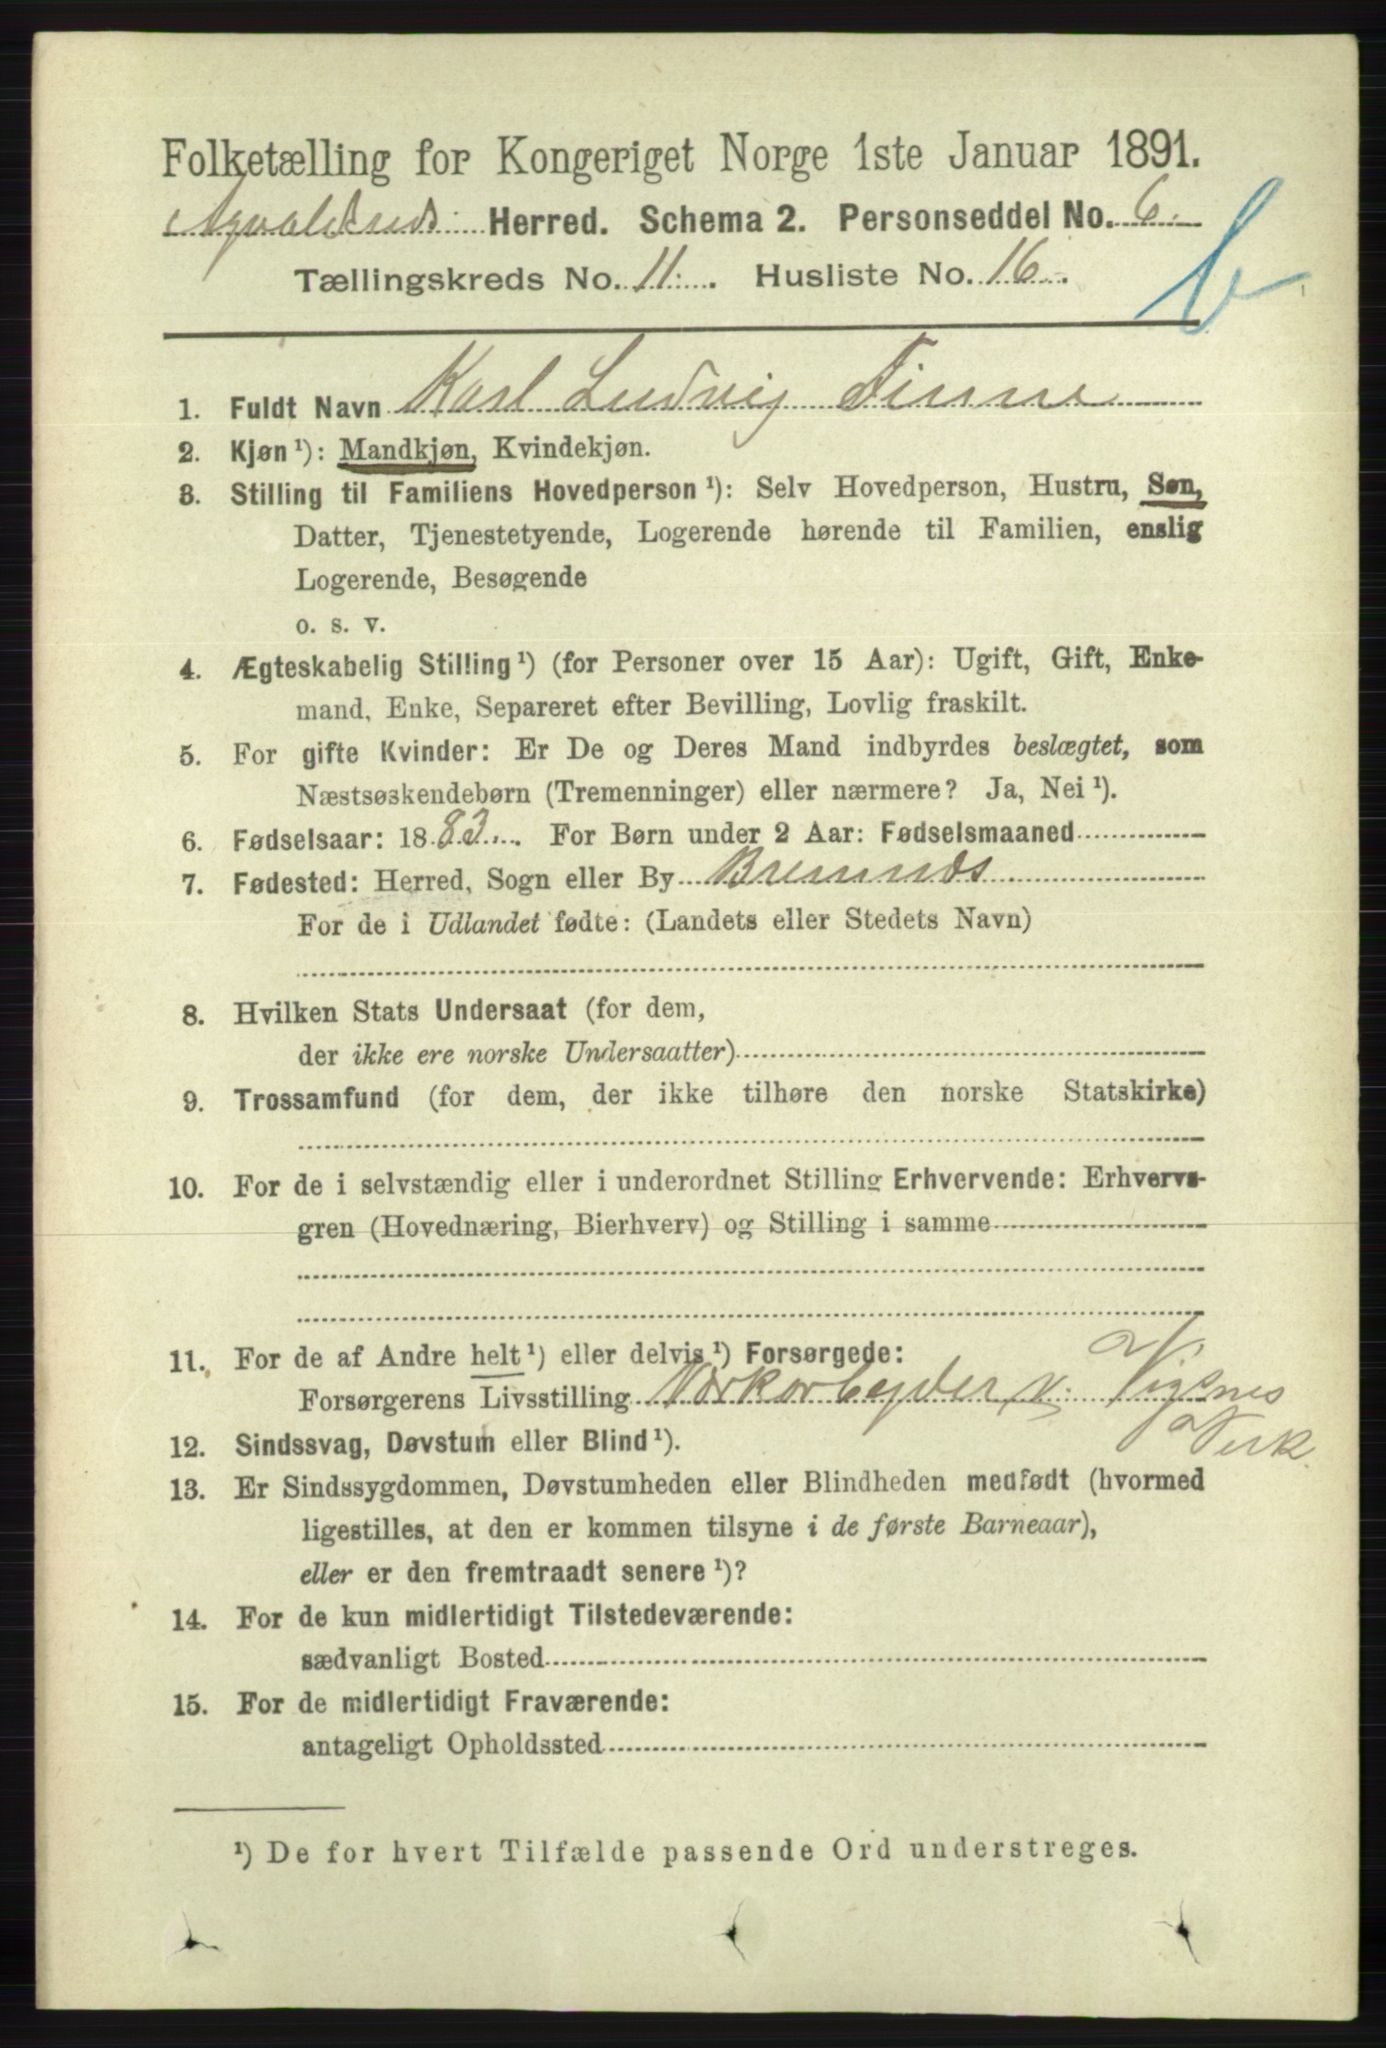 Folketælling for Kongeriget Norge 1ste Januar 1891.
Avaldsnes Herred. Schema 2. Personseddel No. 6.
Tællingskreds No. 11. Husliste No. 16.
b
1. Fuldt Navn Karl Ludvig Finne
2. Kjøn ¹): Mandkjøn, Kvindekjøn.
3. Stilling til Familiens Hovedperson ¹): Selv Hovedperson, Hustru, Søn,
Datter, Tjenestetyende, Logerende hørende til Familien, enslig
Logerende, Besøgende
o. s. v.
4. Ægteskabelig Stilling ¹) (for Personer over 15 Aar): Ugift, Gift, Enke-
mand, Enke, Separeret efter Bevilling, Lovlig fraskilt.
5. For gifte Kvinder: Er De og Deres Mand indbyrdes beslægtet, som
Næstsøskendebørn (Tremenninger) eller nærmere? Ja, Nei ¹).
6. Fødselsaar: 1883. For Børn under 2 Aar: Fødselsmaaned
7. Fødested: Herred, Sogn eller By Bremnes
For de i Udlandet fødte: (Landets eller Stedets Navn)
8. Hvilken Stats Undersaat (for dem,
der ikke ere norske Undersaatter)
9. Trossamfund (for dem, der ikke tilhøre den norske Statskirke)
10. For de i selvstændig eller i underordnet Stilling Erhvervende: Erhvervs-
gren (Hovednæring, Bierhverv) og Stilling i samme
11. For de af Andre helt ¹) eller delvis ¹) Forsørgede:
Forsørgerens Livsstilling Værkarbeyder v. Vigsnes
Verk
12. Sindssvag, Døvstum eller Blind ¹).
13. Er Sindssygdommen, Døvstumheden eller Blindheden medfødt (hvormed
ligestilles, at den er kommen tilsyne i de første Barneaar),
eller er den fremtraadt senere ¹)?
14. For de kun midlertidigt Tilstedeværende:
sædvanligt Bosted
15. For de midlertidigt Fraværende:
antageligt Opholdssted
¹) De for hvert Tilfælde passende Ord understreges.